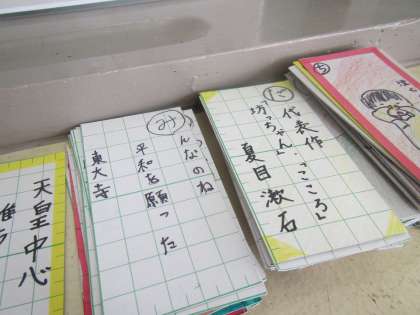 ち
だ
代表作「こころ」
坊っちゃん」
夏目漱石
み
んなのね
平和を願った
東大寺
天皇中心